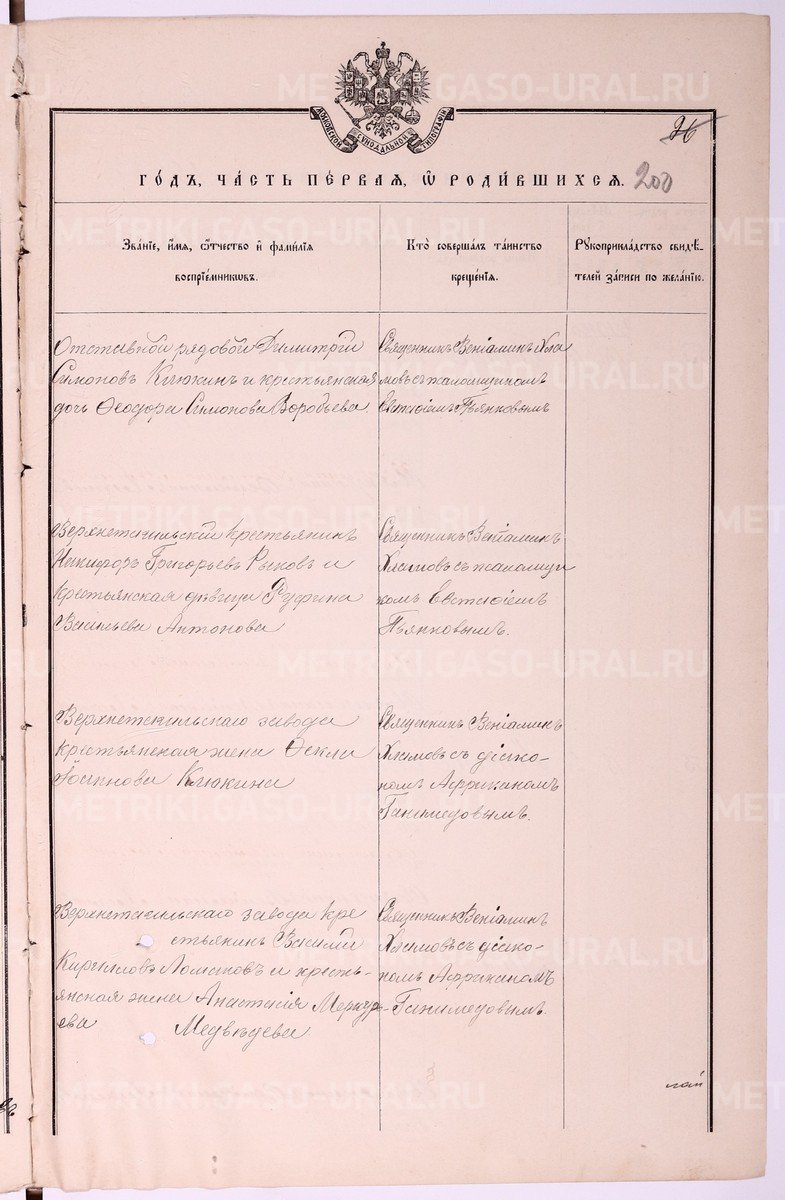 МОСКОВСКОЙ СѴНОДАЛЬНОЙ ТИПОГРАФІИ
26
ГО́ДЪ, ЧА́СТЬ ПЕ́РВАЯ, Ѡ҆ РОДИ́ВШИХСЯ. 200
Зва́нїе, и҆́мя, ѻ҆́тчество и҆ фами́лїя
воспрїе́мникѡвъ.
Кто̀ соверша́лъ та́инство
креще́нїя.
Рꙋкоприкла́дство свидѣ́-
телей за́писи по жела́нїю.
Отставной рядовой Димитрій
Симоновъ Клюкинъ и крестьянская
дочь Ѳеодора Симонова Воробьева.
Священникъ Веніаминъ Хла
мовъ съ псаломщикомъ
Евстаѳіемъ Пьянковымъ
Верхнетагильскій крестьянинъ
Никифоръ Григорьевъ Рыковъ и
крестьянская дѣвица Руфина
Васильева Антонова
Священникъ Веніаминъ
Хламовъ съ псаломщи
комъ Евстаѳіемъ
Пьянковымъ.
Верхнетагильскаго завода
крестьянская жена Ѳекла
Іосифова Клюкина
Священникъ Веніаминъ
Хламовъ съ діако-
номъ Африканомъ
Ганимедовымъ.
Верхнетагильскаго завода кре
стьянинъ Василій
Кириловъ Ломаковъ и кресть-
янская жена Анастасія Меркурь-
ева Медвѣдева
Священникъ Веніаминъ
Хламовъ съ діако-
номъ Африканомъ
Ганимедовымъ.
METRIKI.GASO-URAL.RU